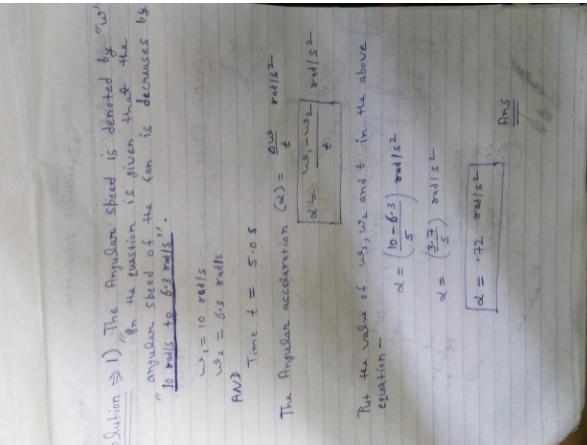 olution ⇒ 1) The Angular speed is denoted by "w"
"In the question is given that the
angular speed of the fan is decreases by
"10 rad/s to 6.3 rad/s".
w₁ = 10 rad/s
w₂ = 6.3 rad/s
AND
Time t = 5.0 s
The Angular acceleration (α) = Δw/t rad/s²
α = w₁-w₂/t rad/s²
Put the value of w₁, w₂ and t in the above
equation -
α = (10-6.3/5) rad/s²
α = (3.7/5) rad/s²
α = .72 rad/s²
Ans